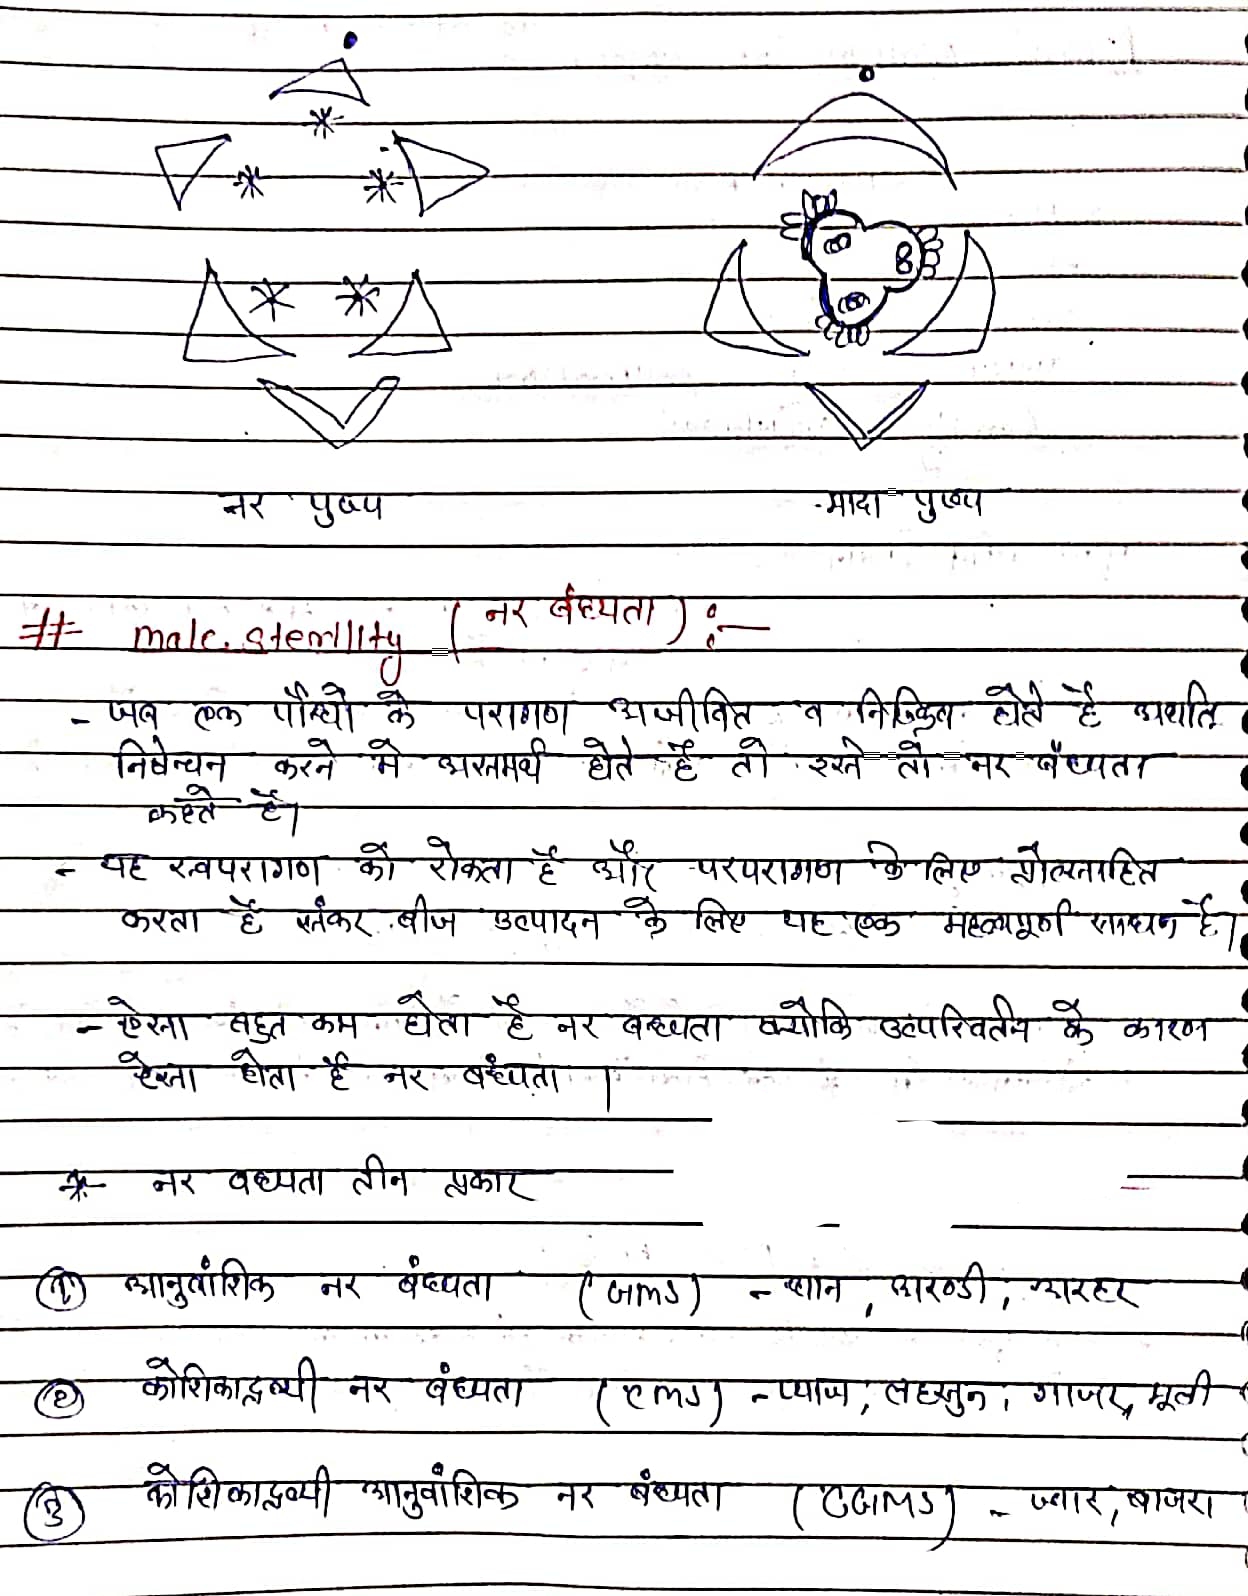 नर पुष्प
मादा पुष्प
# male sterility (नर बंध्यता) :-
- जब एक पौधों के परागण अजीवित व निष्क्रिय होते है अर्थात
निषेन्चन करने मे असमर्थ होते है तो इसे तो नर बंध्यता
कहते है।
- यह स्वपरागण को रोकता है और परपरागण के लिए प्रोत्साहित
करता है संकर बीज उत्पादन के लिए यह एक महत्वपूर्ण साधन है।
- ऐसा बहुत कम होता है नर बन्ध्यता क्योकि उत्परिवर्तन के कारण
ऐसा होता है नर बंध्यता ।
* नर बंध्यता तीन प्रकार
① आनुवांशिक नर बंध्यता (GMS) - धान, अरण्डी, अरहर
② कोशिकाद्रव्यी नर बंध्यता (CMS) - प्याज, लहसुन, गाजर, मूली
③ कोशिकाद्रव्यी आनुवांशिक नर बंध्यता (CGMS) - ज्वार, बाजरा